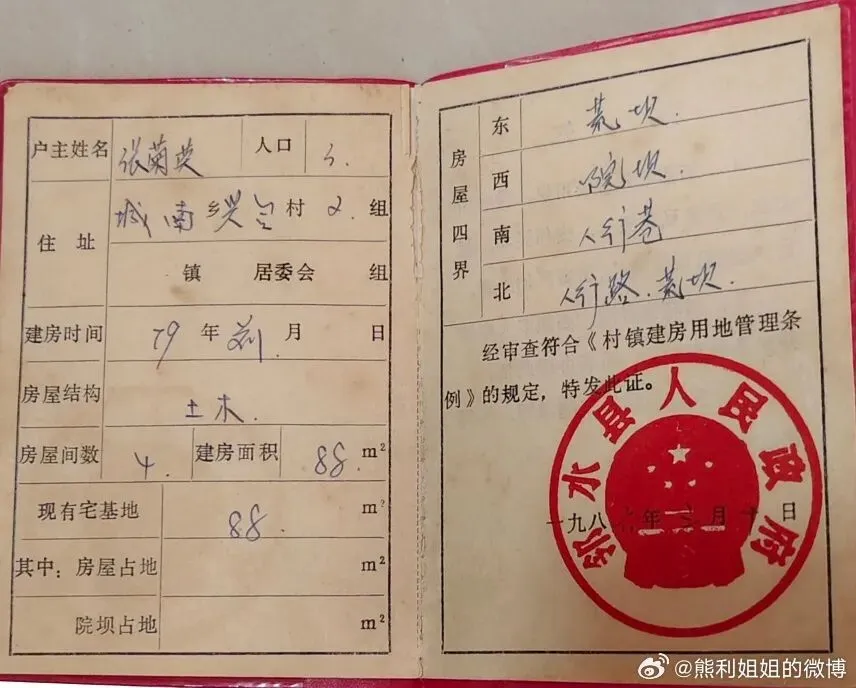 户主姓名 张菊英 人口 3.
住址 城南乡兴仝村 2 组
镇 居委会 组
建房时间 79 年 前 月 日
房屋结构 土木.
房屋间数 4. 建房面积 88. m²
现有宅基地 88. m²
其中：房屋占地 m²
院坝占地 m²
房屋四界
东 荒坝.
西 院坝.
南 人行巷
北 人行路.荒坝.
经审查符合《村镇建房用地管理条
例》的规定，特发此证。
水县人民政府
一九八 年 月十日
@熊利姐姐的微博